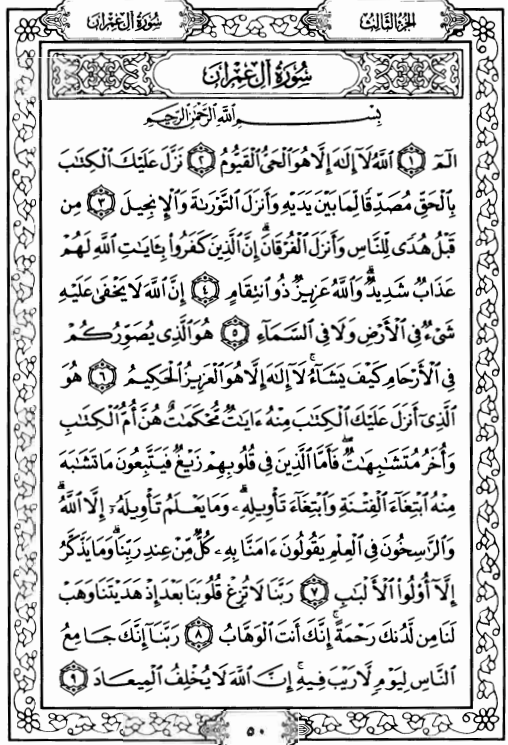 سُورَةُ آلِ عِمْرَانَ
الجُزْءُ الثَّالِثُ
سُورَةُ آلِ عِمْرَانَ
بِسْمِ اللَّهِ الرَّحْمَٰنِ الرَّحِيمِ
الٓمٓ ١ اللَّهُ لَآ إِلَٰهَ إِلَّا هُوَ الْحَيُّ الْقَيُّومُ ٢ نَزَّلَ عَلَيْكَ الْكِتَٰبَ
بِالْحَقِّ مُصَدِّقًا لِّمَا بَيْنَ يَدَيْهِ وَأَنزَلَ التَّوْرَىٰةَ وَالْإِنجِيلَ ٣ مِن
قَبْلُ هُدًى لِّلنَّاسِ وَأَنزَلَ الْفُرْقَانَ ۗ إِنَّ الَّذِينَ كَفَرُوا۟ بِـَٔايَٰتِ اللَّهِ لَهُمْ
عَذَابٌ شَدِيدٌ ۗ وَاللَّهُ عَزِيزٌ ذُو انتِقَامٍ ٤ إِنَّ اللَّهَ لَا يَخْفَىٰ عَلَيْهِ
شَىْءٌ فِى الْأَرْضِ وَلَا فِى السَّمَآءِ ٥ هُوَ الَّذِى يُصَوِّرُكُمْ
فِى الْأَرْحَامِ كَيْفَ يَشَآءُ ۚ لَآ إِلَٰهَ إِلَّا هُوَ الْعَزِيزُ الْحَكِيمُ ٦ هُوَ
الَّذِىٓ أَنزَلَ عَلَيْكَ الْكِتَٰبَ مِنْهُ ءَايَٰتٌ مُّحْكَمَٰتٌ هُنَّ أُمُّ الْكِتَٰبِ
وَأُخَرُ مُتَشَٰبِهَٰتٌ ۖ فَأَمَّا الَّذِينَ فِى قُلُوبِهِمْ زَيْغٌ فَيَتَّبِعُونَ مَا تَشَٰبَهَ
مِنْهُ ابْتِغَآءَ الْفِتْنَةِ وَابْتِغَآءَ تَأْوِيلِهِۦ ۗ وَمَا يَعْلَمُ تَأْوِيلَهُۥٓ إِلَّا اللَّهُ ۗ
وَالرَّٰسِخُونَ فِى الْعِلْمِ يَقُولُونَ ءَامَنَّا بِهِۦ كُلٌّ مِّنْ عِندِ رَبِّنَا ۗ وَمَا يَذَّكَّرُ
إِلَّآ أُو۟لُوا۟ الْأَلْبَٰبِ ٧ رَبَّنَا لَا تُزِغْ قُلُوبَنَا بَعْدَ إِذْ هَدَيْتَنَا وَهَبْ
لَنَا مِن لَّدُنكَ رَحْمَةً ۚ إِنَّكَ أَنتَ الْوَهَّابُ ٨ رَبَّنَآ إِنَّكَ جَامِعُ
النَّاسِ لِيَوْمٍ لَّا رَيْبَ فِيهِ ۚ إِنَّ اللَّهَ لَا يُخْلِفُ الْمِيعَادَ ٩
٥٠